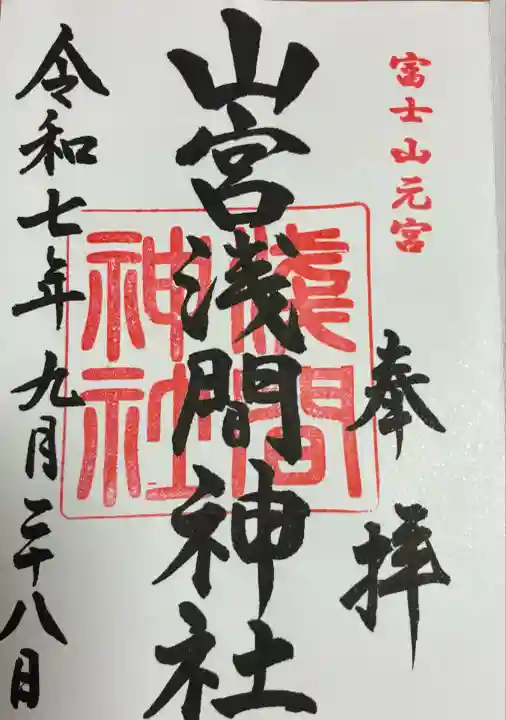 富士山元宮
奉拝
山宮浅間神社
淺間
神社
令和七年九月二十八日